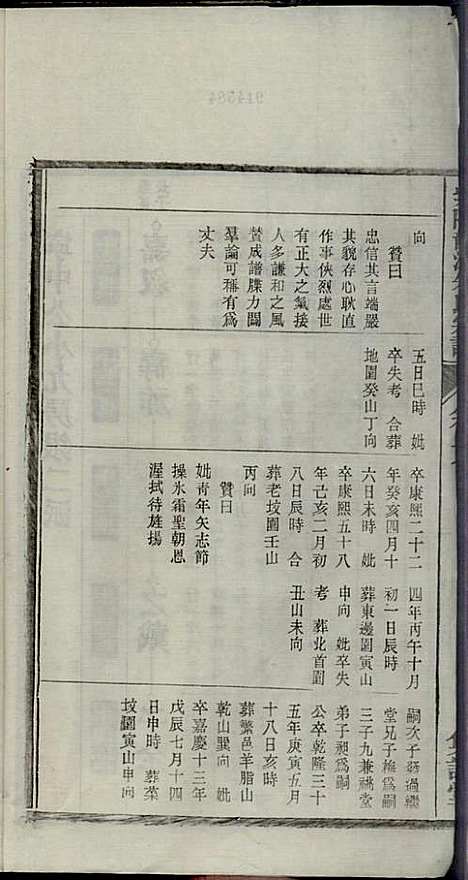 向
贊曰
忠信其言端嚴
其貌存心耿直
作事俠烈處世
有正大之氣接
人多謙和之風
贊成譜牒力闢
羣論可稱有為
丈夫
五日巳時 妣
卒失考 合葬
地園癸山丁向
卒康熙二十二
年癸亥四月十
六日未時 妣
卒康熙五十八
年己亥二月初
八日辰時 合
葬老坟園壬山
丙向
贊曰
妣靑年矢志節
操氷霜聖朝恩
渥拭待旌揚
四年丙午十月
初一日辰時
葬東邊園寅山
申向 妣卒失
考 葬北首園
丑山未向
嗣次子發過繼
堂兄子為嗣
三子九兼祧堂
弟子昶為嗣
公卒乾隆三十
五年庚寅五月
十八日亥時
葬繁邑羊脂山
乾山巽向 妣
卒嘉慶十三年
戊辰七月十四
日申時 葬菜
坟園寅山申向